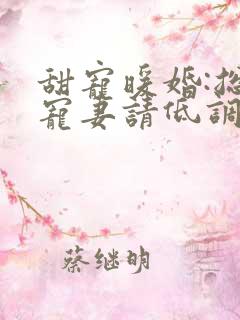 甜寵暖婚:總
寵妻請低調
蔡继明